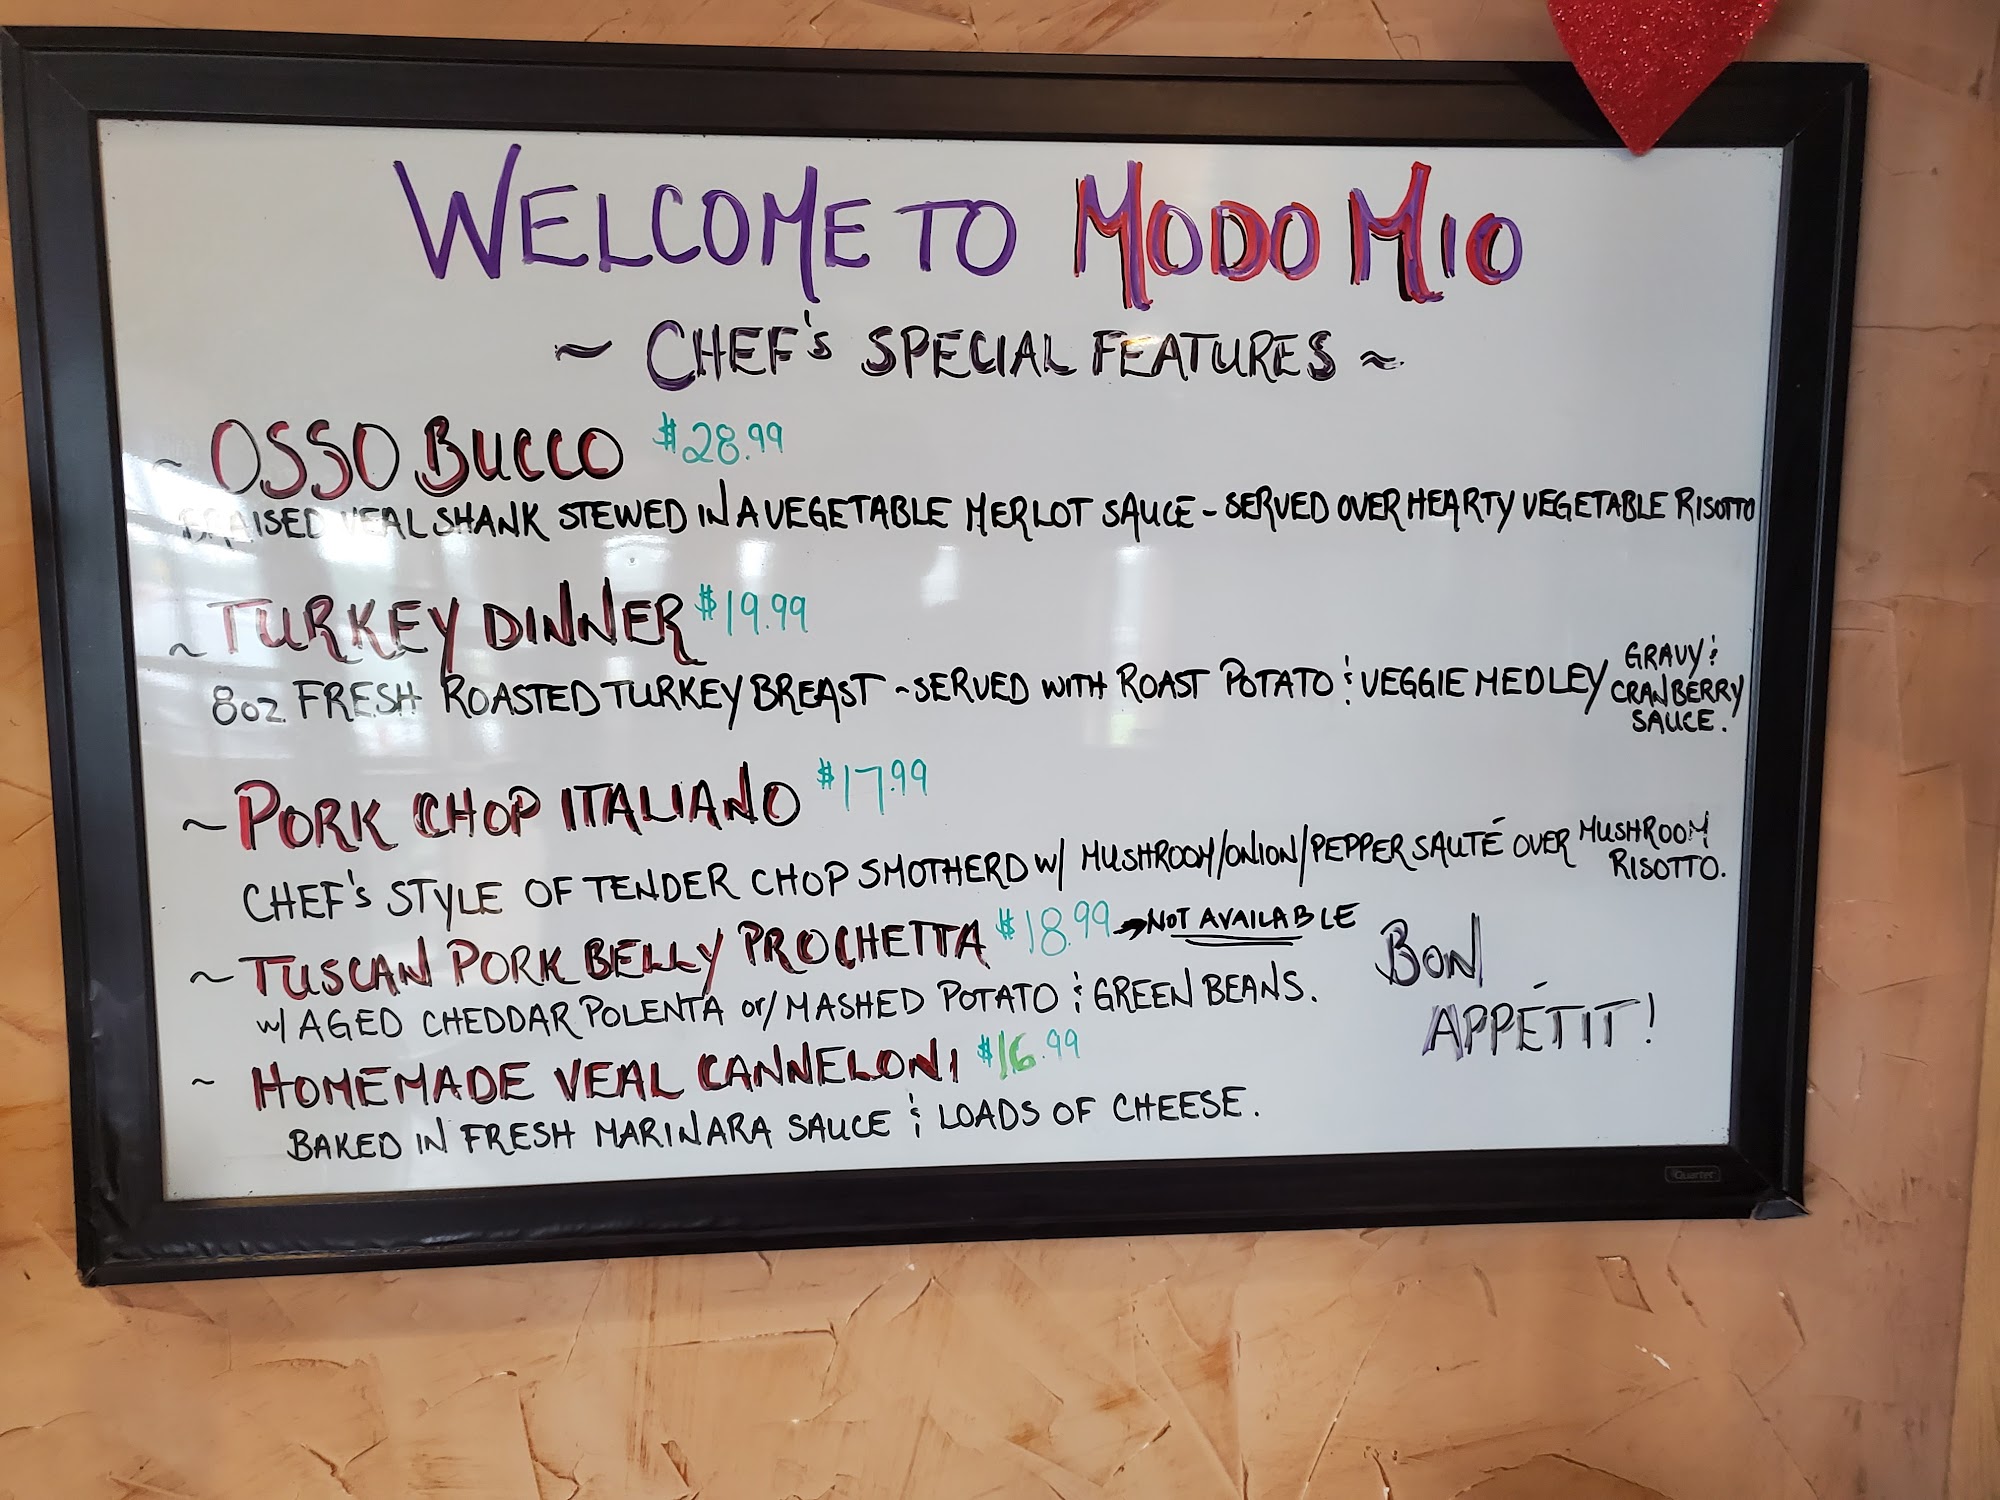 WELCOME TO MODO MIO
~ CHEF's SPECIAL FEATURES ~
~ OSSO BUCCO $28.99
BRAISED VEAL SHANK STEWED IN A VEGETABLE MERLOT SAUCE - SERVED OVER HEARTY VEGETABLE RISOTTO
~ TURKEY DINNER $19.99
8oz FRESH ROASTED TURKEY BREAST ~ SERVED WITH ROAST POTATO & VEGGIE MEDLEY GRAVY &
CRANBERRY
SAUCE.
~ PORK CHOP ITALIANO $17.99
CHEF's STYLE OF TENDER CHOP SMOTHERD W/ MUSHROOM/ONION/PEPPER SAUTÉ OVER MUSHROOM
RISOTTO.
~ TUSCAN PORK BELLY PROCHETTA $18.99 → NOT AVAILABLE
W/ AGED CHEDDAR POLENTA or/ MASHED POTATO & GREEN BEANS.
~ HOMEMADE VEAL CANNELONI $16.99
BAKED IN FRESH MARINARA SAUCE & LOADS OF CHEESE.
BON
APPÉTIT!
Quartet